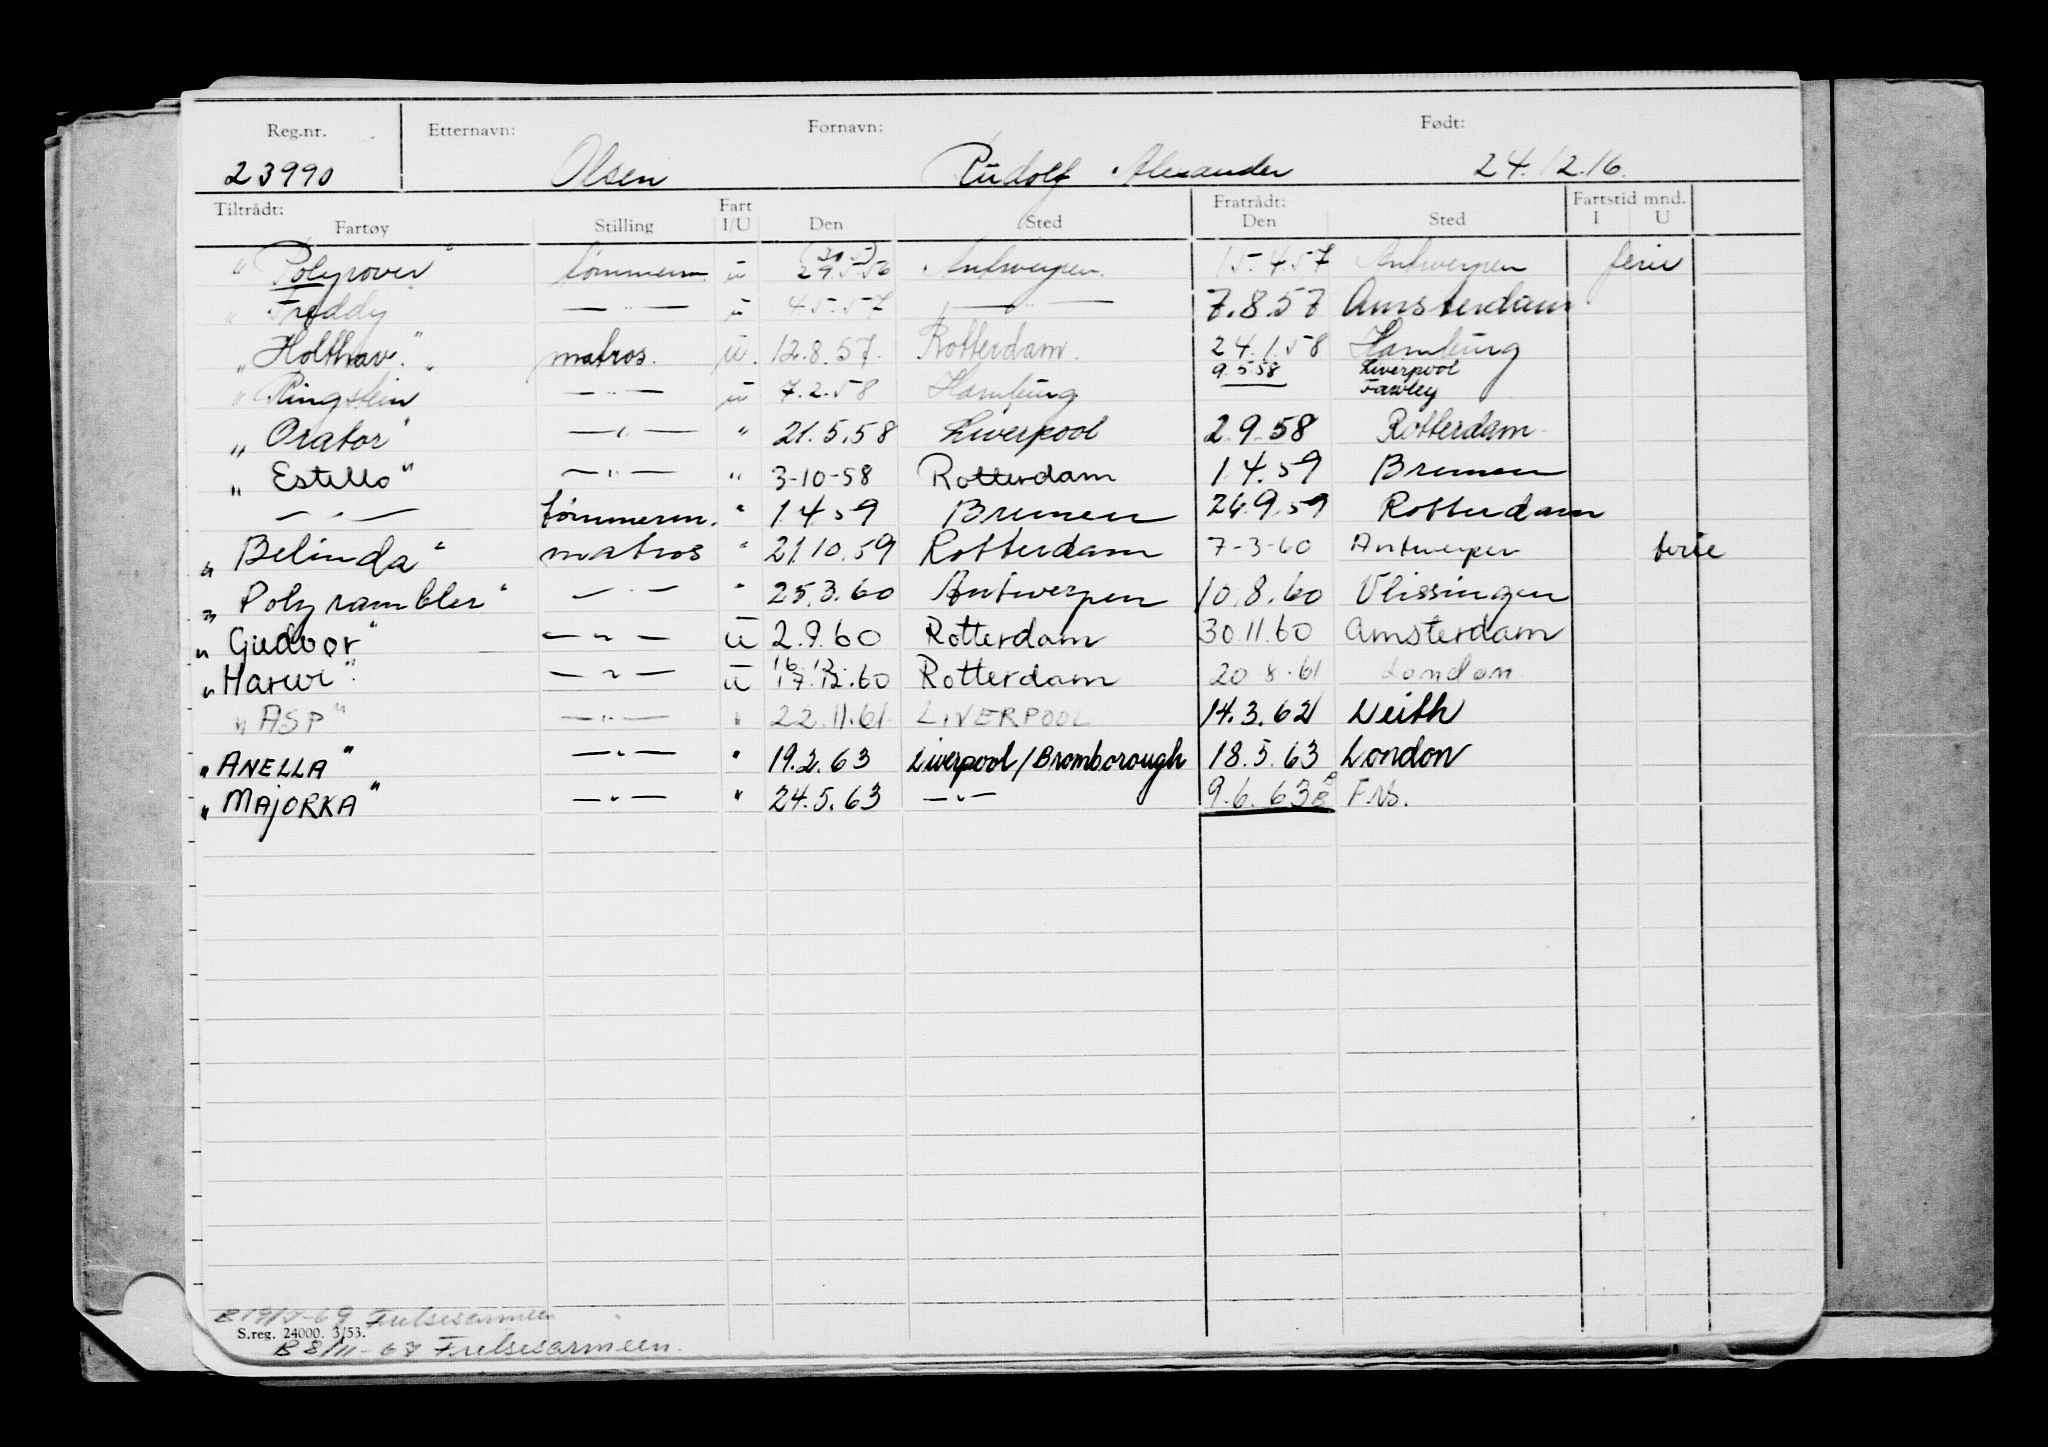 Reg.nr. Etternavn: Fornavn: Født:
23990 Olsen Rudolf Alexander 24.12.16.
Tiltrådt: Fart Fratrådt: Fartstid mnd.
Fartøy Stilling I/U Den Sted Den Sted I U
"Polyrover" tømmerm. ū (30.5) 29.5.56 Antwerpen. 15.4.57 Antwerpen ferie
"Freddy" — " — ū 4.5.57 — " — 7.8.57 Amsterdam
"Holthav." matros. ū. 12.8.57. Rotterdam. 24.1.58 Hamburg
"Ringstein — " — ū 7.2.58 Hamburg 9.5.58 Liverpool Fawley
"Orator" — " — " 21.5.58 Liverpool 2.9.58 Rotterdam
"Estello" — " — " 3-10-58 Rotterdam 1.4.59 Bremen
— " — tømmerm. " 1.4.59 Bremen 26.9.59 Rotterdam
"Belinda" matros " 21.10.59 Rotterdam 7-3-60 Antwerpen ferie
"Polyrambler" — " — " 25.3.60 Antwerpen 10.8.60 Vlissingen
"Gudvor" — " — ū 2.9.60 Rotterdam 30.11.60 Amsterdam
"Harwi". — " — ū 16.12. 17.12.60 Rotterdam 20.8.61 London
"ASP" — " — " 22.11.61 LIVERPOOL 14.3.62 Leith
"ANELLA" — " — " 19.2.63 Liverpool/Bromborough 18.5.63 London
"MAJORKA" — " — " 24.5.63 — " — 9.6.63 F.vs.
B 19/ -69 Frelsesarmeen
S.reg. 24000. 3/53.
B 8/11-67 Frelsesarmeen.